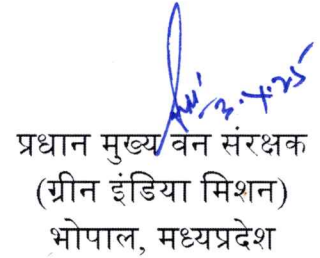 3.4.25
प्रधान मुख्य वन संरक्षक
(ग्रीन इंडिया मिशन)
भोपाल, मध्यप्रदेश